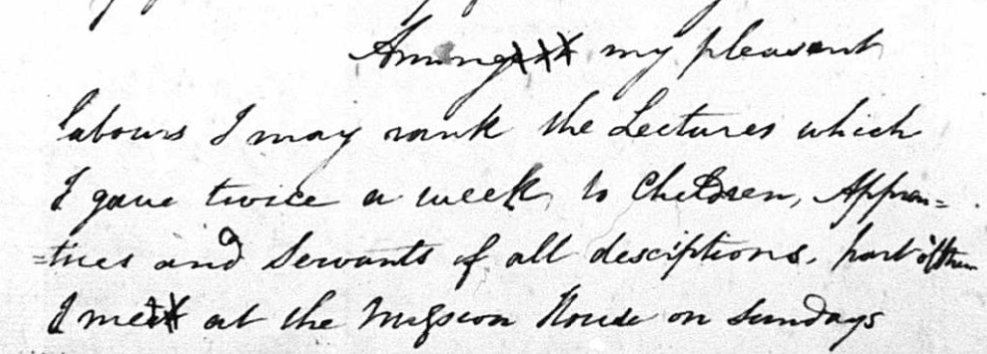 Among my pleasant
labours I may rank the Lectures which
I gave twice a week, to Children, Appren=
=tices and Servants of all desciptions, part of them
I met at the Mission House on Sundays